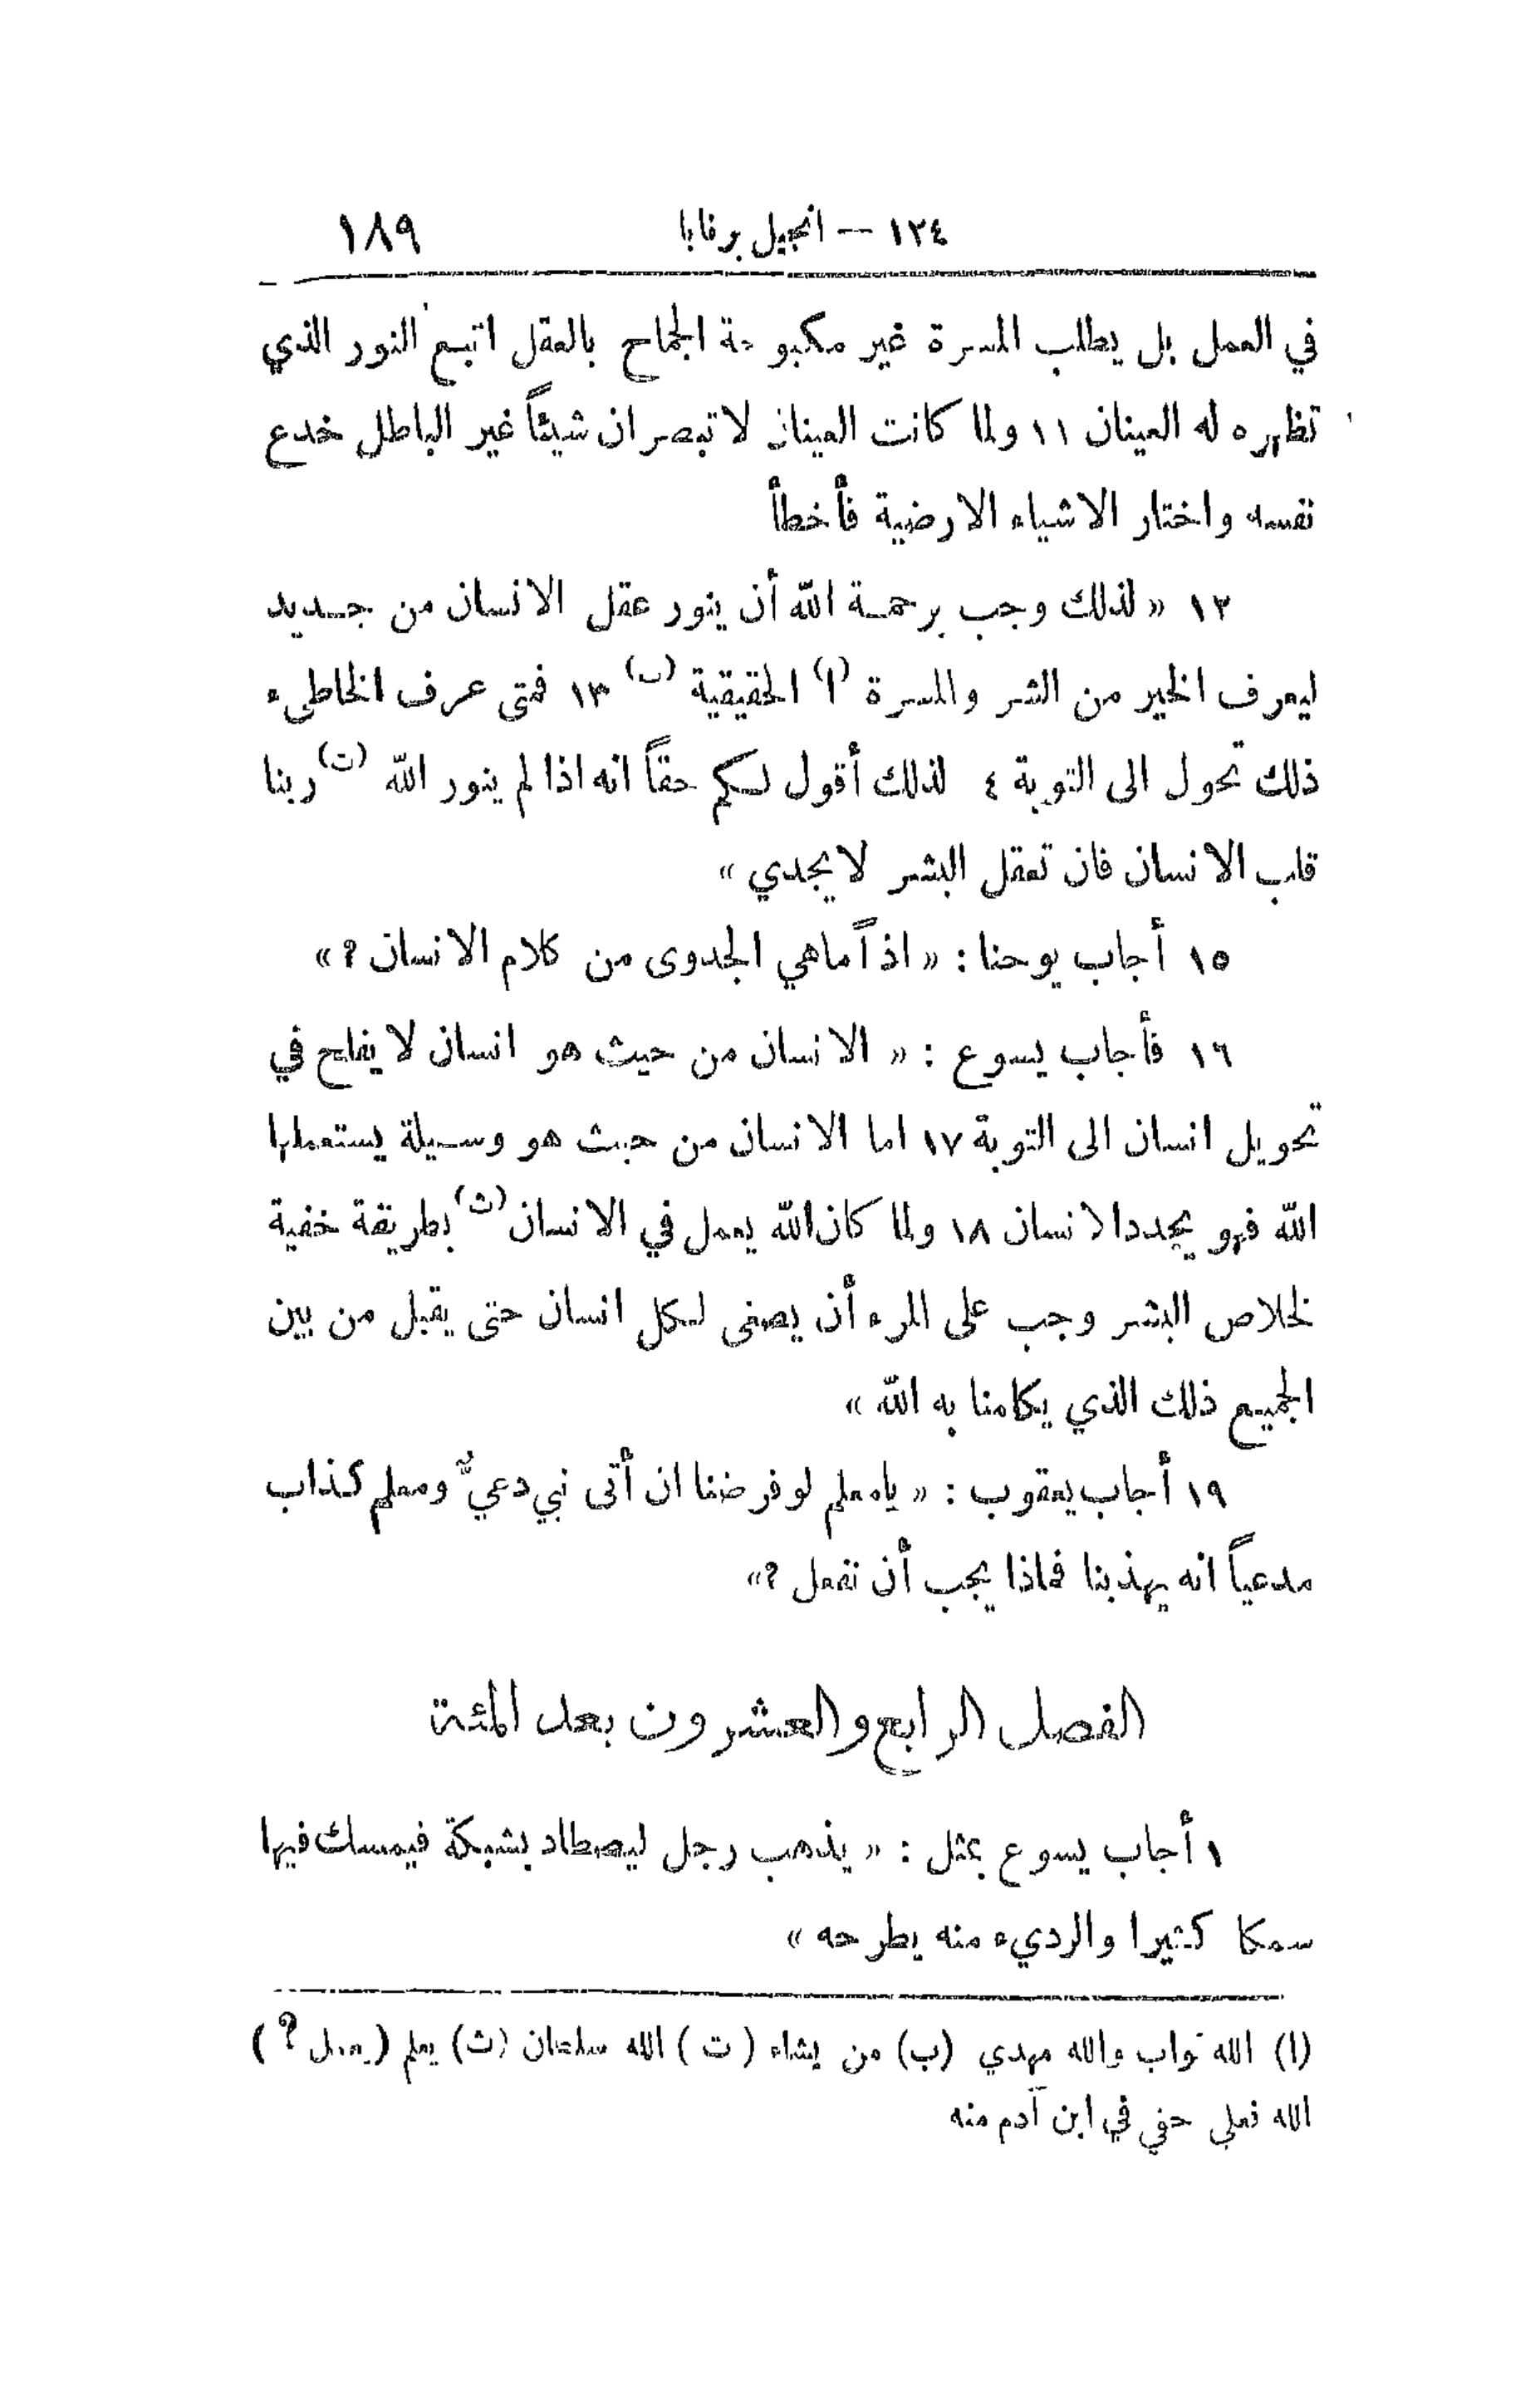 ١٢٤ — انجيل برنابا ١٨٩
في العمل بل يطلب المسرة غير مكبوحة الجماح بالعقل اتبع النور الذي
تظهره له العينان ١١ ولما كانت العينان لا تبصران شيئاً غير الباطل خدع
نفسه واختار الاشياء الارضية فأخطأ
١٢ « لذلك وجب برحمة الله أن ينور عقل الانسان من جديد
ليعرف الخير من الشر والمسرة (ا) الحقيقية (ب) ١٣ فمتى عرف الخاطىء
ذلك تحول الى التوبة ٤ لذلك أقول لكم حقاً انه اذا لم ينور الله (ت) ربنا
قلب الانسان فان تعقل البشر لا يجدي »
١٥ أجاب يوحنا : « اذاً ماهي الجدوى من كلام الانسان ؟ »
١٦ فأجاب يسوع : « الانسان من حيث هو انسان لا يفلح في
تحويل انسان الى التوبة ١٧ اما الانسان من حيث هو وسيلة يستعملها
الله فهو يجدد الانسان ١٨ ولما كان الله يعمل في الانسان (ث) بطريقة خفية
لخلاص البشر وجب على المرء أن يصغى لكل انسان حتى يقبل من بين
الجميع ذلك الذي يكلمنا به الله »
١٩ أجاب يعقوب : « يامعلم لو فرضنا ان أتى نبي دعيٌّ ومعلم كذاب
مدعياً انه يهذبنا فماذا يجب أن نفعل ؟ »
الفصل الرابع والعشرون بعد المئة
١ أجاب يسوع بمثل : « يذهب رجل ليصطاد بشبكة فيمسك فيها
سمكا كثيرا والرديء منه يطرحه »
(ا) الله تواب والله مهدي (ب) من يشاء (ت) الله سلطان (ث) يعلم (يعمل ؟)
الله فعلي حفي في ابن آدم منه